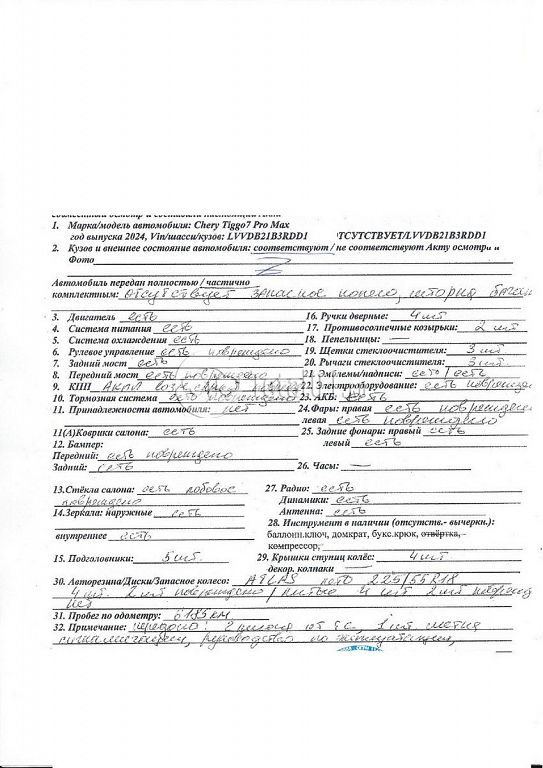 1. Марка/модель автомобиля: Chery Tiggo7 Pro Max
год выпуска 2024, Vin/шасси/кузов: LVVDB21B3RDD1 ТСУТСТВУЕТ/LVVDB21B3RDD1
2. Кузов и внешнее состояние автомобиля: соответствуют / не соответствуют Акту осмотра и
Фото
Автомобиль передан полностью / частично
комплектным: отсутствует запасное колесо, шторка багаж
3. Двигатель есть
4. Система питания есть
5. Система охлаждения есть
6. Рулевое управление есть повреждено
7. Задний мост есть
8. Передний мост есть повреждено
9. КПП АКПП
10. Тормозная система есть повреждено
11. Принадлежности автомобиля: нет
11(А)Коврики салона: есть
12. Бампер:
Передний: есть повреждено
Задний: есть
13.Стёкла салона: есть лобовое
повреждено
14.Зеркала: наружные есть
внутреннее есть
15. Подголовники: 5 шт.
16. Ручки дверные: 4 шт
17. Противосолнечные козырьки: 2 шт
18. Пепельницы: —
19. Щетки стеклоочистителя: 3 шт
20. Рычаги стеклоочистителя: 3 шт.
21. Эмблемы/надписи: есть / есть
22. Электрооборудование: есть поврежден
23. АКБ: есть
24.Фары: правая есть повреждена
левая есть повреждено
25. Задние фонари: правый есть
левый есть
26. Часы: —
27. Радио: есть
Динамики: есть
Антенна: есть
28. Инструмент в наличии (отсутств.- вычеркн.):
баллонн.ключ, домкрат, букс.крюк, отвёртка, -
компрессор,
29. Крышки ступиц колёс: 4 шт.
декор. колпаки —
30. Авторезина/Диски/Запасное колесо: ATLAS лето 225/55R18
4 шт. 2 шт повреждено / литые 4 шт 2 шт поврежд
нет
31. Пробег по одометру: 6185 км
32. Примечание: передано: 2 ключа от ТС, 1 шт метка
сигнализации, руководство по эксплуатации,